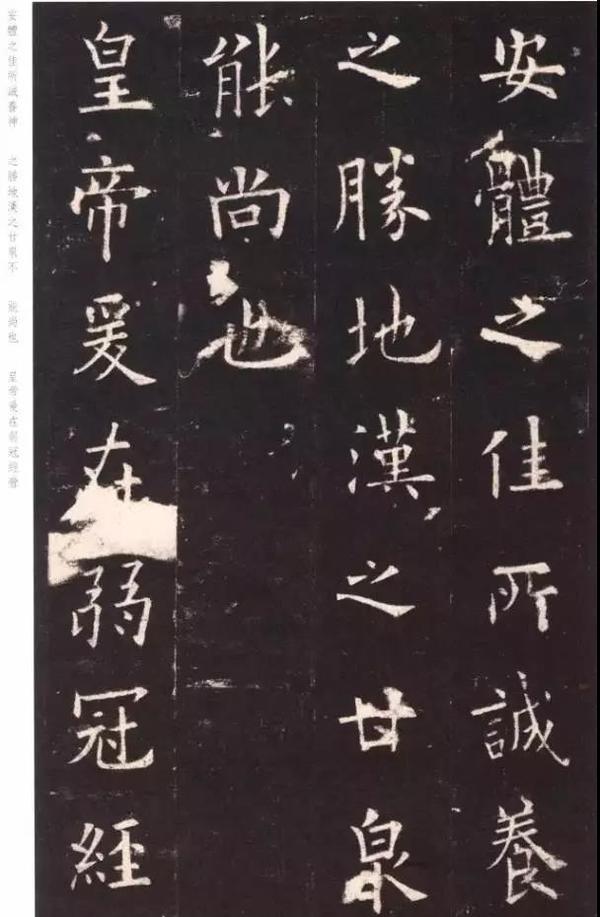 安體之佳所誠養
之勝地漢之甘泉
能尚也
皇帝爰在弱冠經
安體之佳所誠養神 之勝地漢之甘泉不 能尚也 皇帝爰在弱冠經營